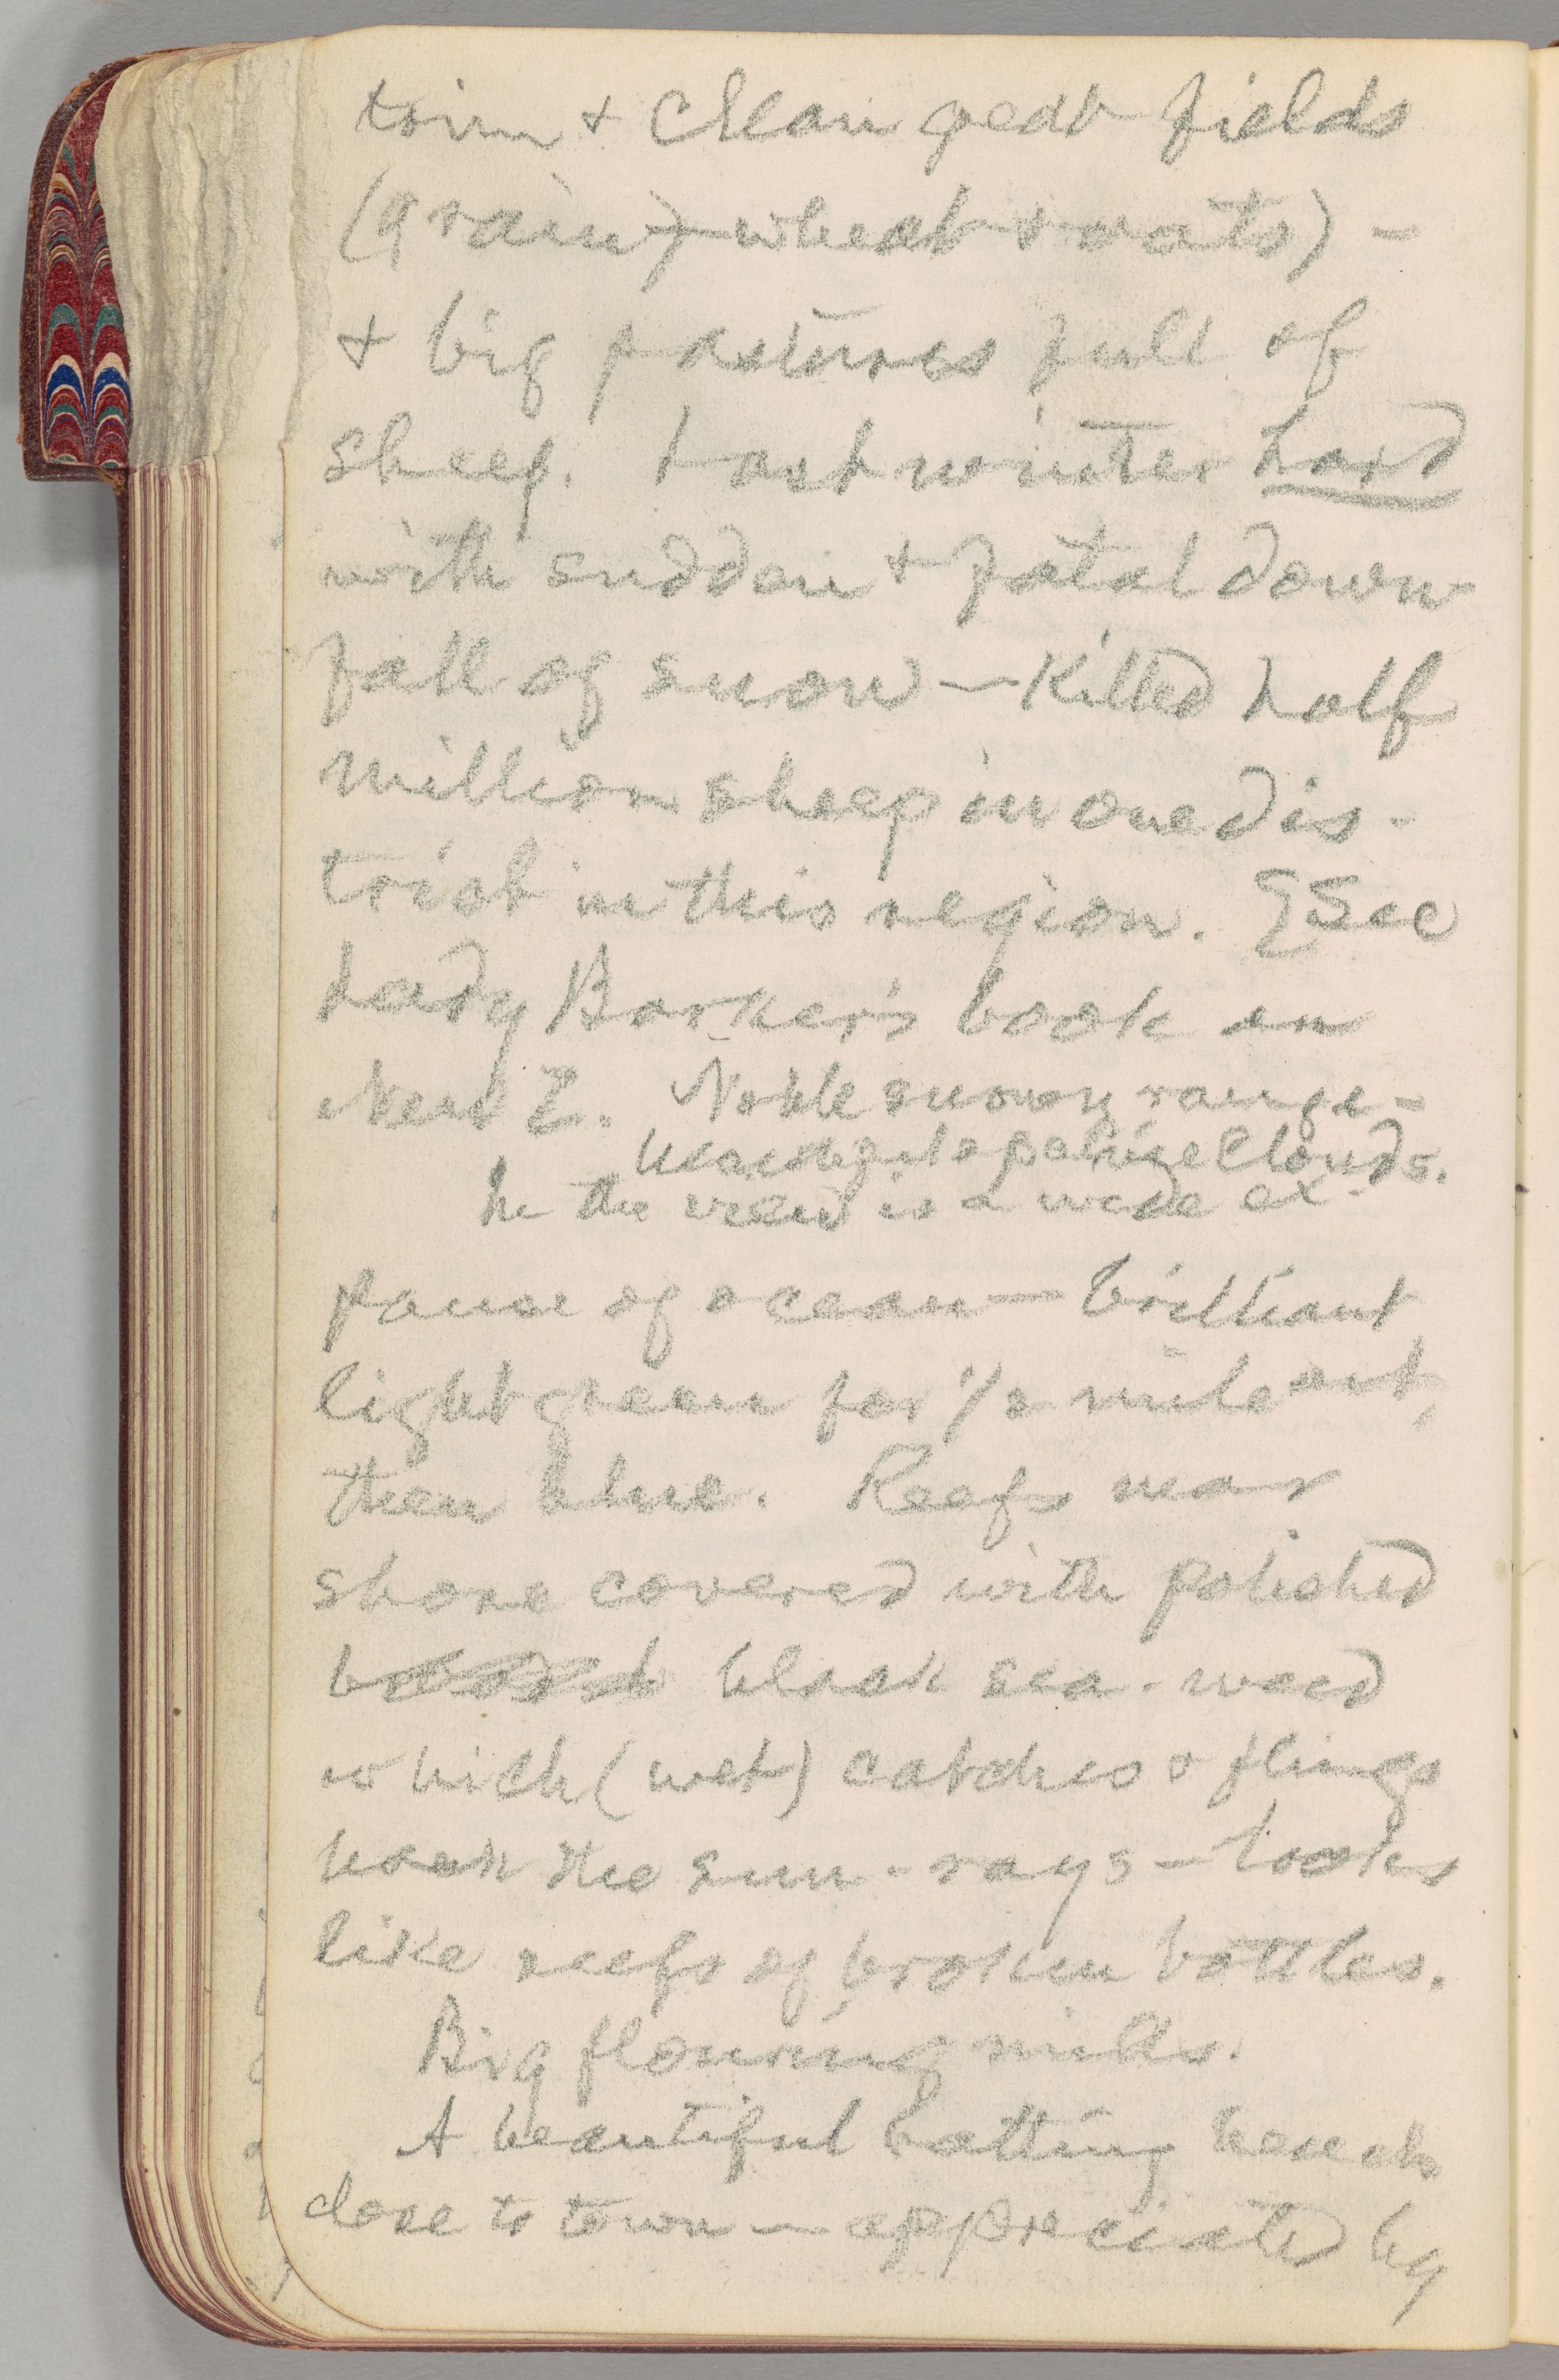 trim + clean neat fields
(grain)—wheat & oats) —
+ big pastures full of
sheep. Last winter hard
with sudden + fatal down-
fall of snow — killed half
million sheep in one dis-
trict in this region. See
Lady Barker's book on
New Z. Noble snowy range—
beautiful opaline clouds.
In the view is a wide ex-
panse of ocean — brilliant
light green for 1/2 mile out,
then blue. Reefs near
shore covered with polished
black sea-weed
which (wet) catches & flings
back the sun-rays — looks
like reefs of broken bottles.
Big flouring mills.
A beautiful batting beach
close to town — appreciated by